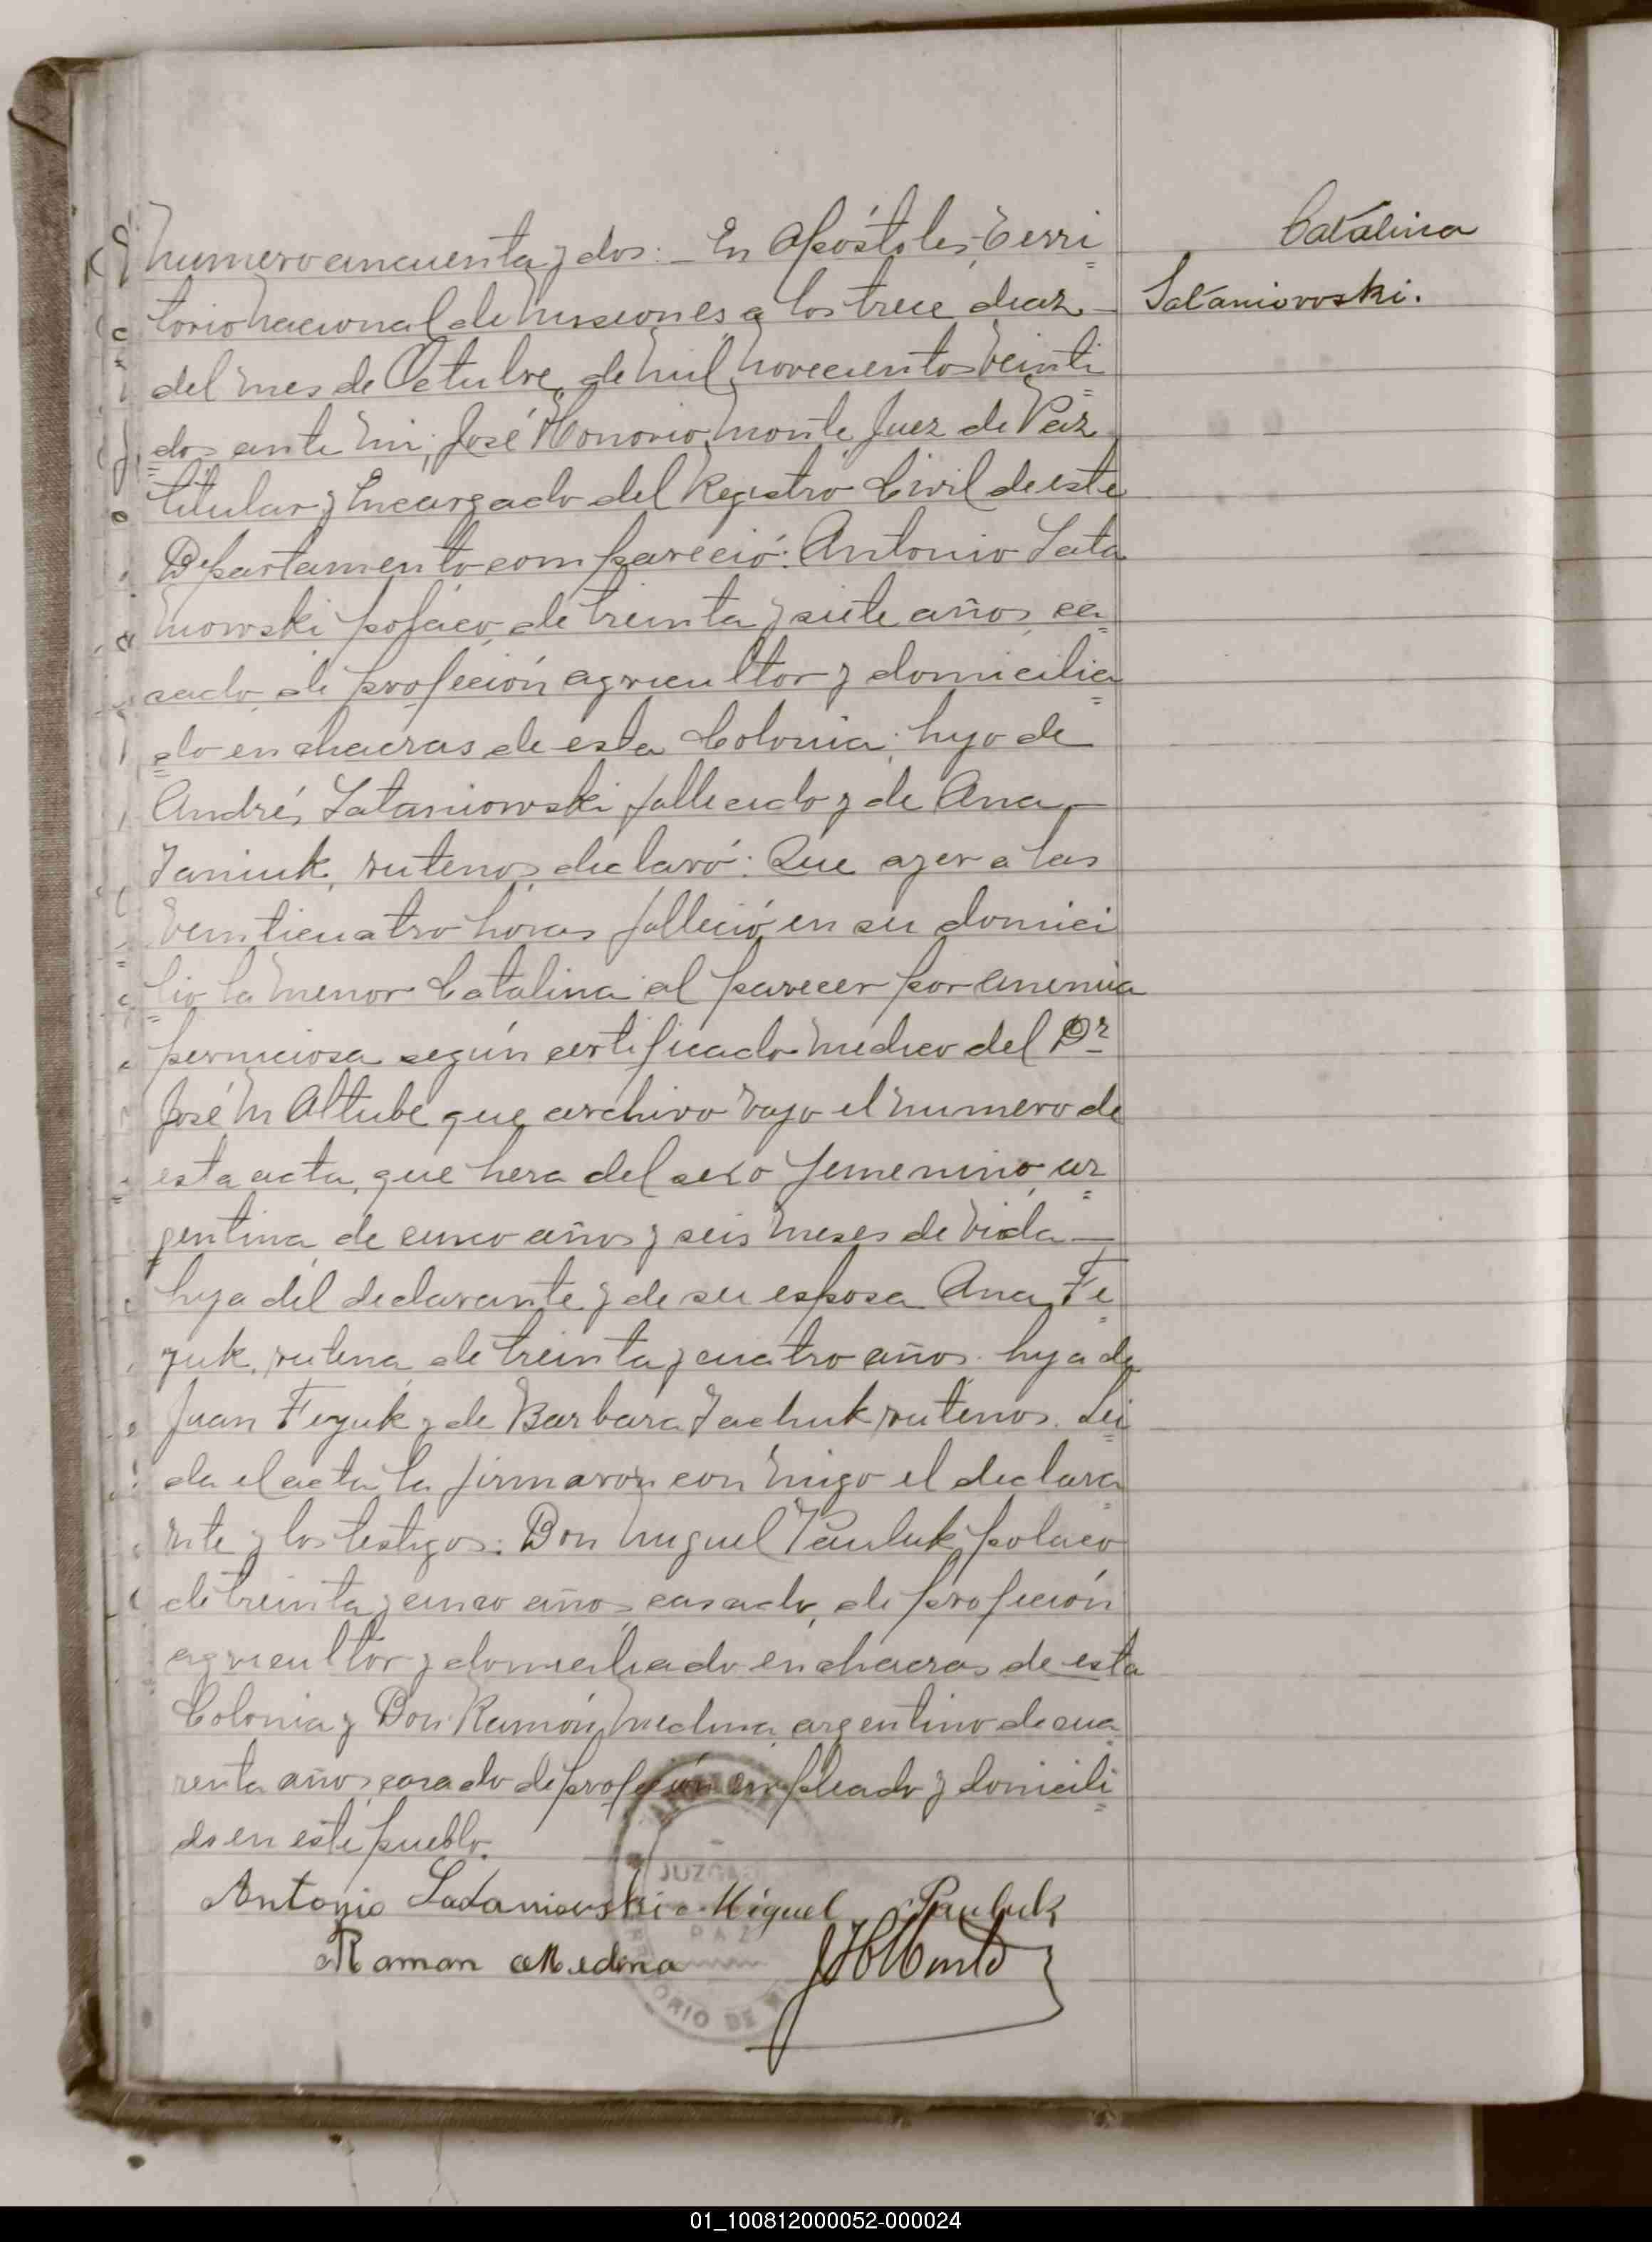 Catalina
Lataniowski.
Numero cincuenta y dos: _ En Apóstoles, Terri
torio Nacional de Misiones a los trece diaz _
del mes de Octubre de mil novecientos veinti
dos ante mi, José Honorio Monte Juez de Paz
titular y Encargado del Registro Civil de este
Departamento compareció: Antonio Lata
niowski polaco, de treinta y siete años, ca
sado, de profeción agricultor y domicilia
do en chacras de esta Colonia; hijo de
Andrés Lataniowski fallecido y de Ana _
Janiuk, rutenos, declaró: Que ayer a las
veinticuatro horas falleció en su domici
lio la menor Catalina al parecer por anemia
perniciosa según certificado medico del Dr
José M Altube que archivo bajo el numero de
esta acta, que hera del sexo femenino, ar
gentina de cinco años y seis meses de vida _
hija del declarante y de su esposa Ana Fe
yuk, rutena, de treinta y cuatro años. hija de
Juan Feyuk y de Barbara Jachuk rutenos. Lei
da el acta la firmaron con migo el declara
nte y los testigos: Don Miguel Pauluk, polaco
de treinta y cinco años, casado, de profeción
agricultor y domiciliado en chacras de esta
Colonia y Don Ramón Medina, argentino de cua
renta años, casado de profeción empleado y domicili
do en este pueblo.
Antonio Ladaniowski Miguel Pauluk
Raman Medina JHMonte
JUZGA
PAZ
ORIO DE
01_100812000052-000024